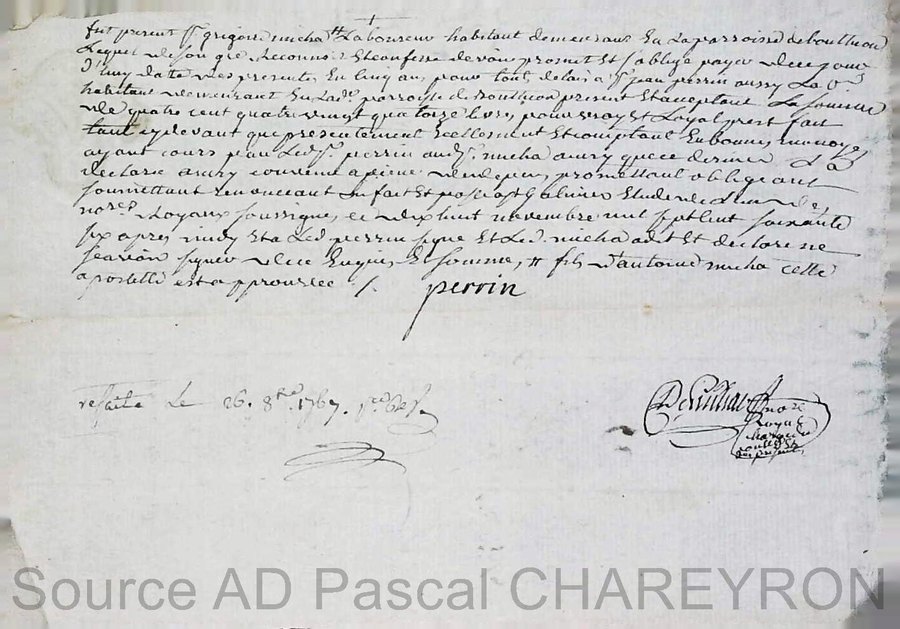 fut present Sr grigoire micha # Laboureur habitant demeurant En La parroisse de boutheon
Lequel de son gré Reconnoit Et confesse devoir promet Et s'oblige payer de ce jour
d'huy date des presentes En cinq ans pour tout delais a Sr jean perrin aussy La
habitant demeurant En Lad. parroisse de Boutheon present Et acceptant La somme
de quatre cent quatre vingt quatorze Livres pour vray Et Loyal prest fait
tant cy devant que presentement reellement Et comptant En bonnes monoyes
ayant cours par Led. Sr. perrin aud. Sr. micha ainsy que ce dernier L'a
declaré ainsy convenu a peine de depens promettant obligeant
soumettant renonceant fait Et passé a St Galmier Etude de L'un des
nores Royaux soussignes ce dix huit novembre mil sept cent soixante
six apres midy Et a Led. perrin signé Et Led. micha a dit Et declaré ne
scavoir signer de ce Enquis Et sommé, # fils d'antoine micha cette
apostille est approuvée /. perrin
refaite Le 26. 8bre. 1767.
nore
Royal
Source AD Pascal CHAREYRON